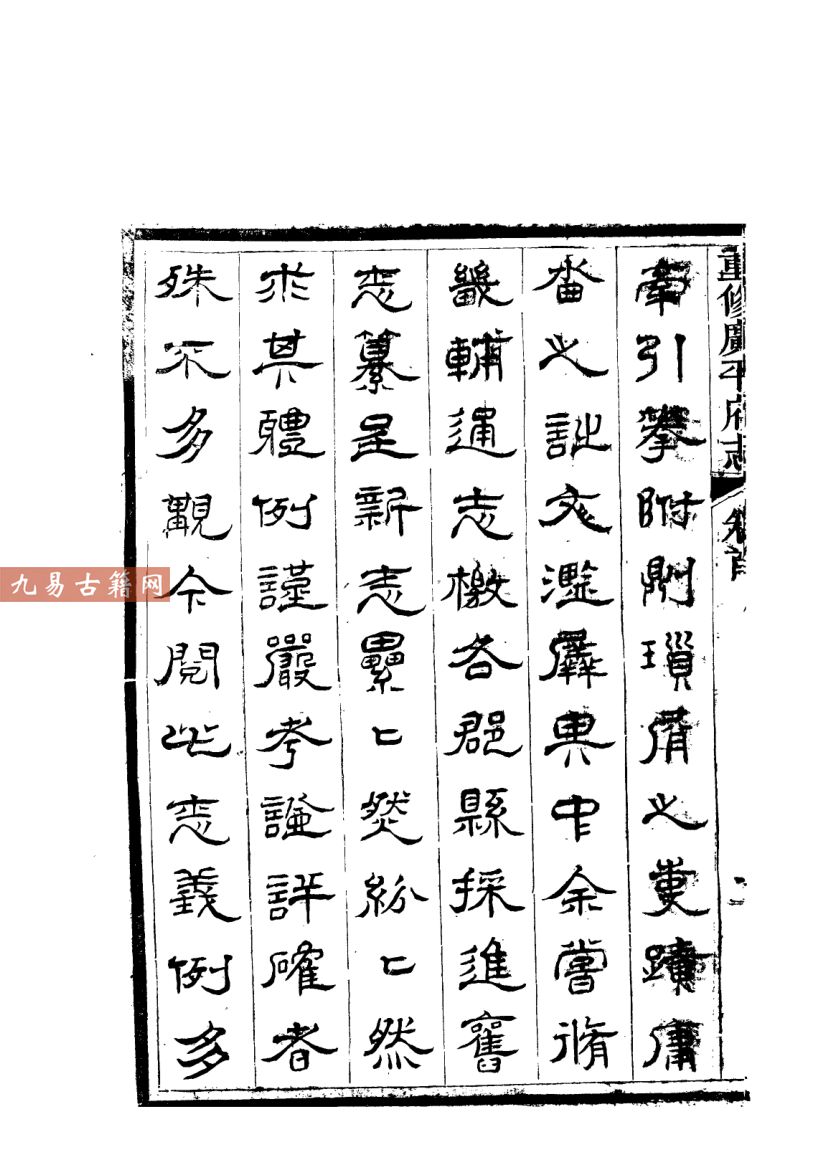 重修廣平府志 卷首
牽引攀附則瑣屑之事蹟庸
沓之詩文濫羼其中余嘗脩
畿輔通志檄各郡縣採進舊
志纂呈新志纍〻然紛〻然
求其體例謹嚴考證詳確者
殊不多覯今閱此志義例多
九易古籍网